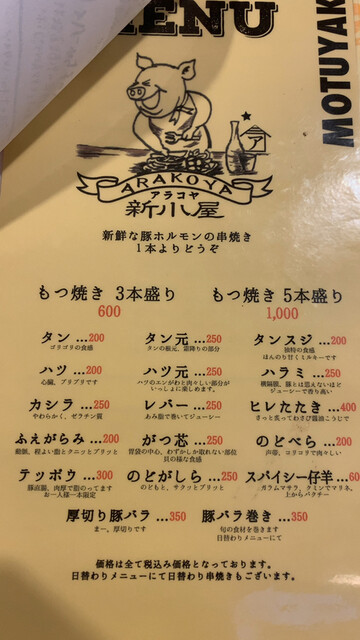 MENU
MOTUYAK
ARAKOYA
アラコヤ
新小屋
新鮮な豚ホルモンの串焼き
1本よりどうぞ
もつ焼き 3本盛り
600
もつ焼き 5本盛り
1,000
タン …200
ゴリゴリの食感
タン元 …250
タンの根元、霜降りの部分
タンスジ …200
独特の食感
ほんのり甘くミルキーです
ハツ …200
心臓、プリプリです
ハツ元 …250
ハツのエンがわと肉々しい部分が
いっしょに楽しめます。
ハラミ …250
横隔膜、豚とは思えないほど
ジューシーで香り高い
カシラ …250
やわらかく、ゼラチン質
レバー …250
あみ脂で巻いてジューシー
ヒレたたき …400
さっと炙ってわさび醤油こうじで
ふえがらみ …200
動脈、程よい脂とクニッとプリッと
がつ芯 …250
胃袋の中心、わずかしか取れない部位
貝の様な食感
のどぺら …200
声帯、コリコリで肉々しい
テッポウ …300
豚直腸、肉厚で脂のってます
お一人様一本限定
のどがしら …250
のどもと、サクッとプリッと
スパイシー仔羊 …60
ガラムマサラ、クミンでマリネ、
上からパクチー
厚切り豚バラ …350
まー、厚切りです
豚バラ巻き …350
旬の食材を巻きます
日替わりメニューにて
価格は全て税込み価格となっております。
日替わりメニューにて日替わり串焼きもございます。